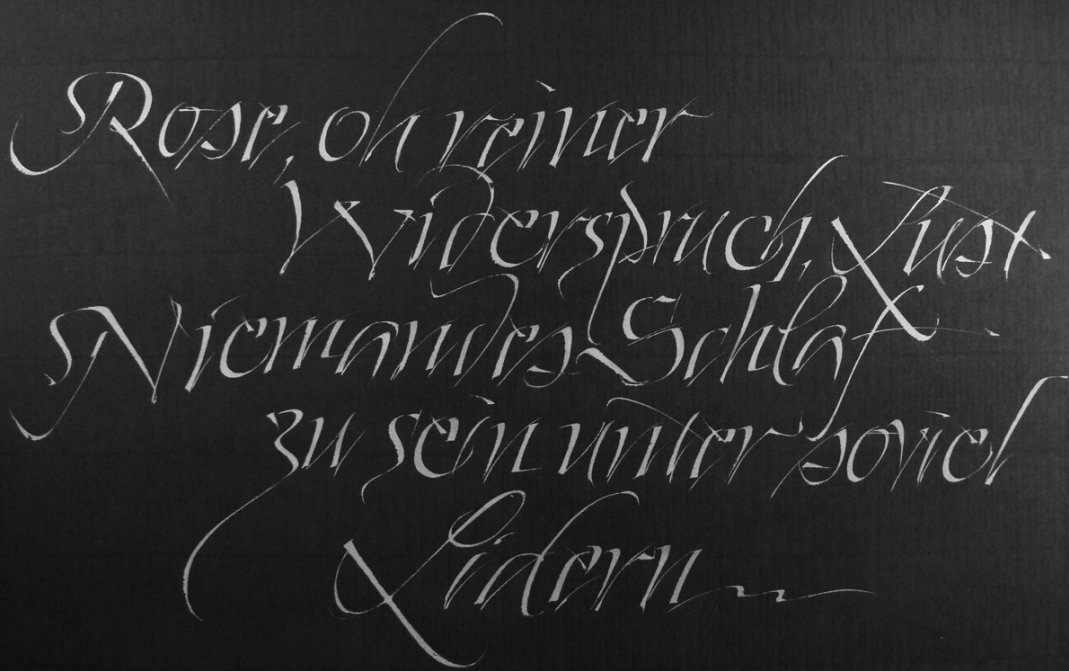 Rose, oh reiner
Widerspruch, Lust
Niemandes Schlaf
zu sein unter soviel
Lidern